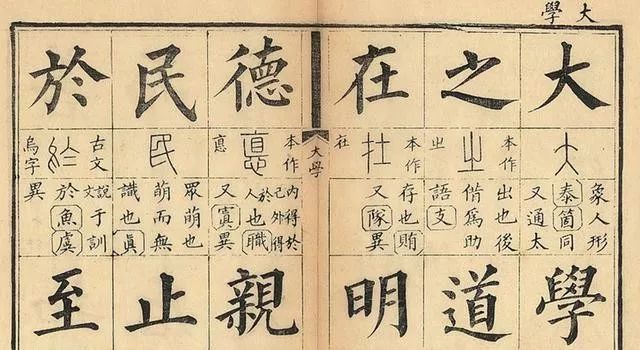 大學
大
象人形
泰箇同
又通太
學
之
本作
㞢
出也後
偕爲助
語支
道
在
在
存也賄
又隊異
明
大學
德
本作
悳
內得於
己外得
於人也職
又寘異
親
民
眾萌也
萌而無
識也眞
止
於
古文
烏字
說文于訓
於魚虞
異
至